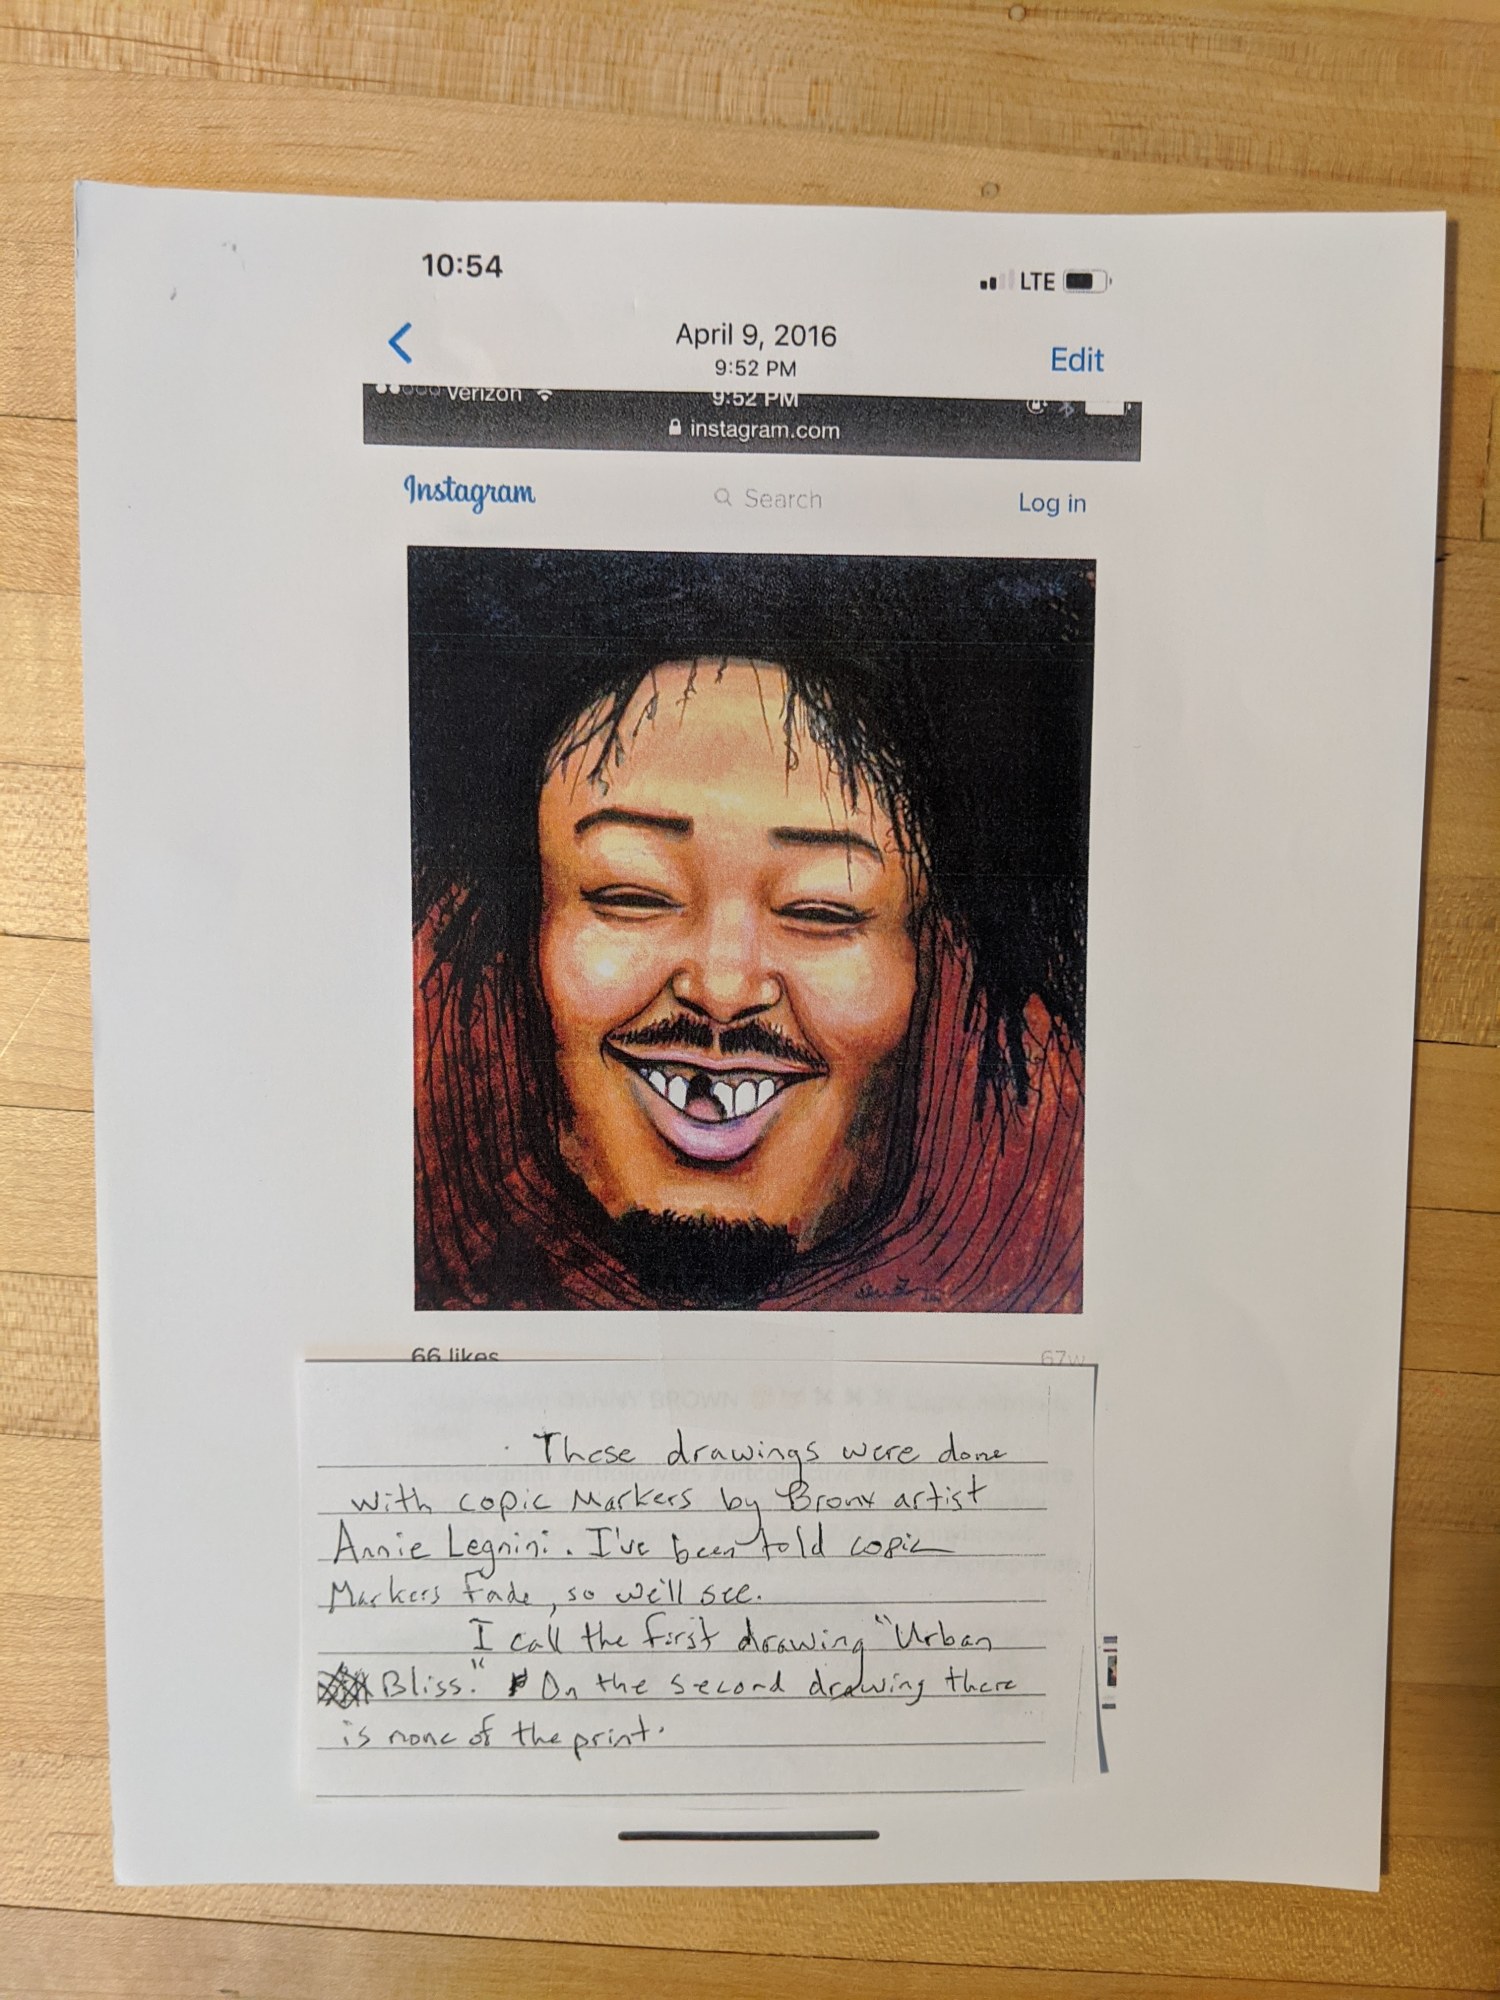 10:54
LTE
April 9, 2016
Edit
9:52 PM
Verizon 9:52 PM
instagram.com
Instagram Search Log in
66 likes 67w
DANNY BROWN
These drawings were done
with copic Markers by Bronx artist
Annie Legnini. I've been told copic
Markers fade, so we'll see.
I call the first drawing "Urban
Bliss." On the second drawing there
is none of the print.